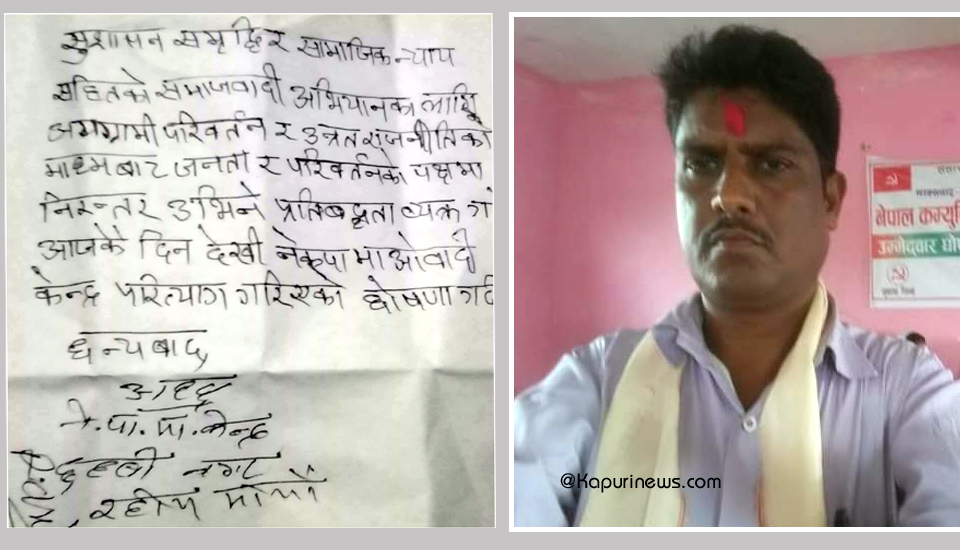 सुशासन समृद्धि र सामाजिक न्याय
सहितको समाजवादी अभियानका लागि
अग्रगामी परिवर्तन र उन्नत राजनीतिको
माध्मबाट जनता र परिवर्तनको पक्षमा
निरन्तर उभिने प्रतिबद्धता व्यक्त ग
आजकै दिन देखी नेकपा माओवादी
केन्द्र परित्याग गरिएको घोषणा गर्द
धन्यबाद,
ने.पा.मा.केन्द्र
नगर
माक्सवाद
नेपाल कम्युनि
उम्मेदवार घोष
@Kapurinews.com